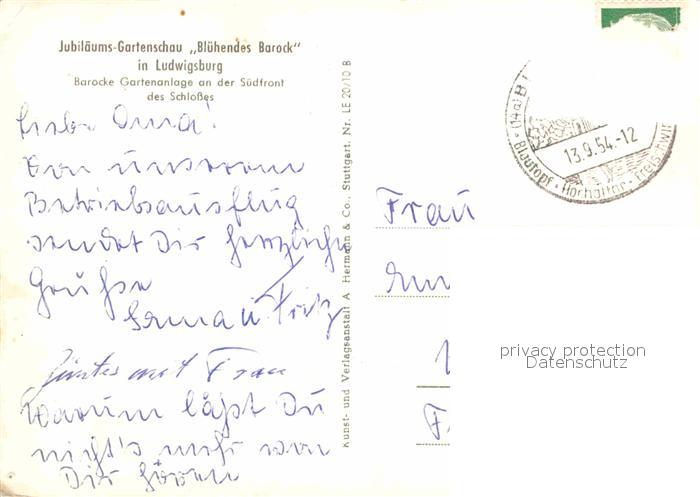 Jubiläums-Gartenschau „Blühendes Barock"
in Ludwigsburg
Barocke Gartenanlage an der Südfront
des Schloßes
Liebe Oma!
Von unserem
Betriebsausflug
sendet Dir herzliche
Grüße
Erna u Fritz
mit Frau
Warum läßt Du
nicht's mehr von
Dir hören
Kunst- und Verlagsanstalt A Hermann & Co., Stuttgart. Nr. LE 20/10 B
(14a) B
13.9.54.-12
Blautopf · Hochaltar · Freischwi
Frau
privacy protection
Datenschutz